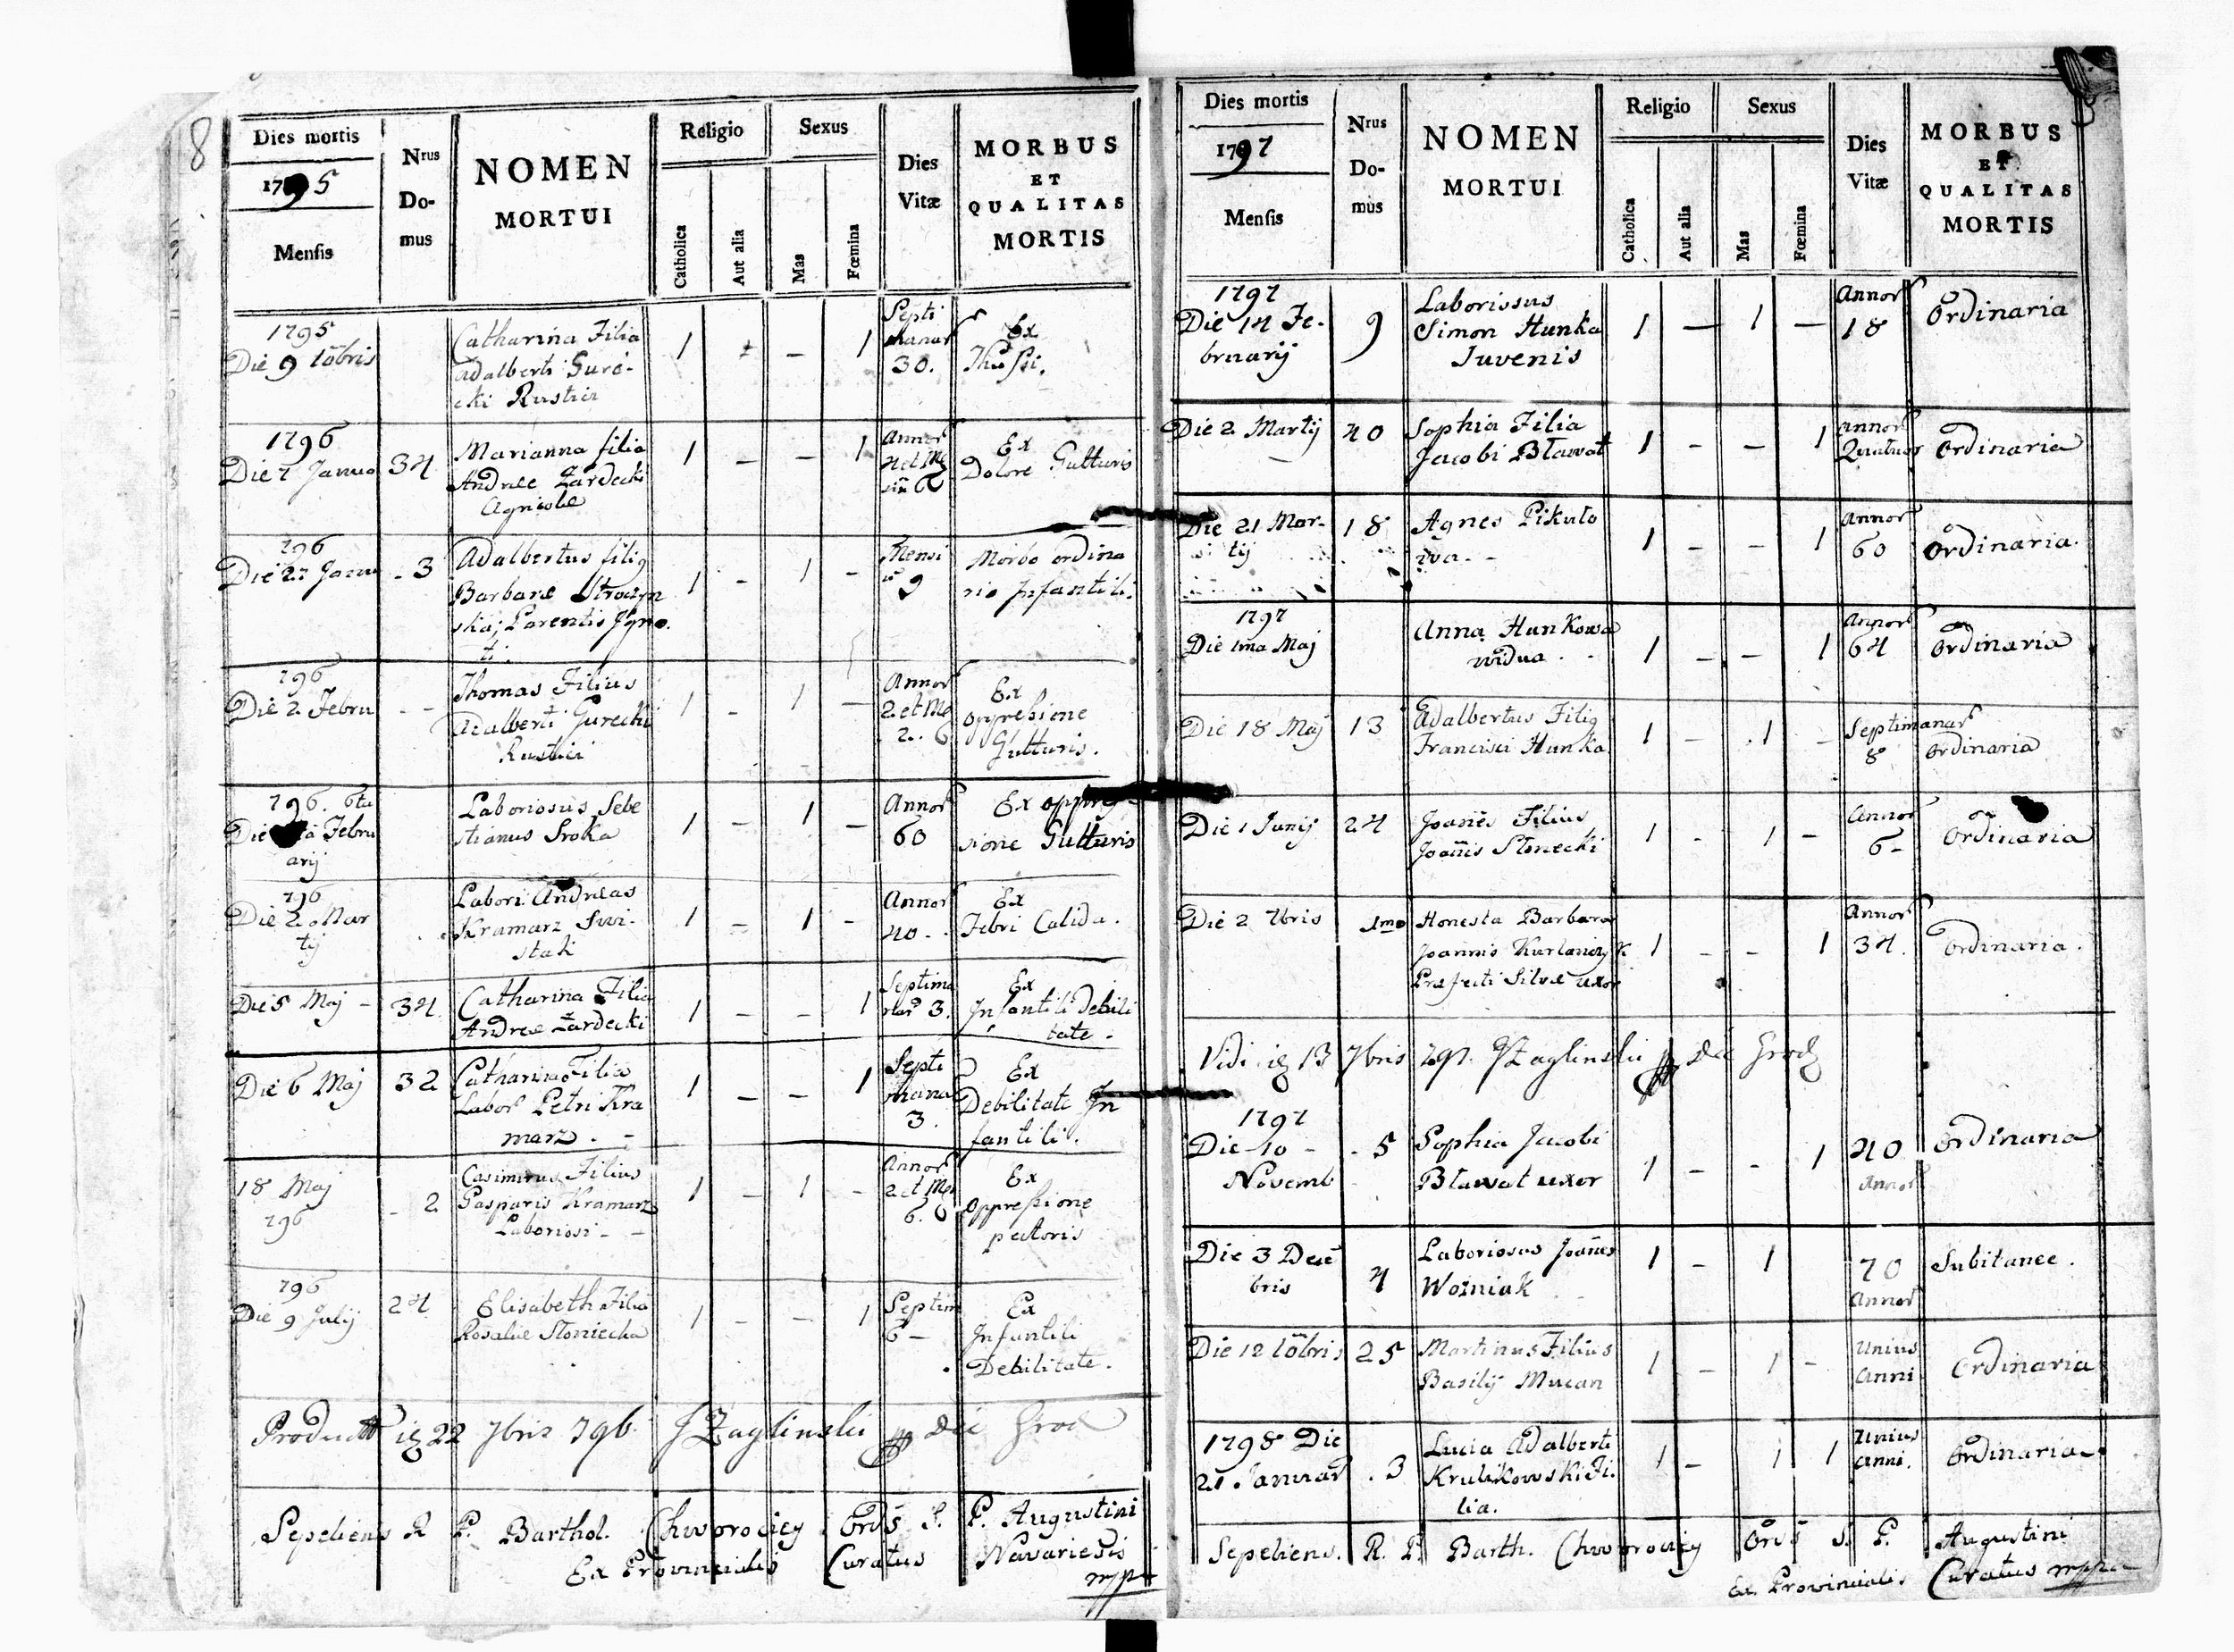 8
Dies mortis
1795
Mensis
Nrus
Do-
mus
NOMEN
MORTUI
Religio
Catholica
Aut alia
Sexus
Mas
Fœmina
Dies
Vitæ
MORBUS
ET
QUALITAS
MORTIS
1795
Die 9 10bris
Catharina Filia
Adalberti Gure-
cki Rustici
1 - - 1
Septi
manar
30.
Ex
Thussi.
1796
Die 7 Janua
34
Marianna filia
Andreæ Zardecki
Agricolæ
1 - - 1
Annor
4 et Me
6
Ex
Dolore Gutturis
796
Die 27 Janu
3
Adalbertus filig
Barbaræ
Parentis Igno
ti.
1 - 1 -
Mensi
9
Morbo ordina
rio Infantili.
796
Die 2 Febru
- -
Thomas Filius
Adalberti Gurecki
Rustici
1 - 1 -
Annor
2. et Me
2.
Ex
oppressione
Gutturis.
796. 6ta
Die Febru
arij
Laboriosus Seba
stianus Sroka
1 - 1 -
Annor
60
Ex oppres
sione Gutturis
796
Die 2 Mar
tij
Labori Andreas
Kramarz Swi-
stak
1 - 1 -
Annor
40.
Ex
Febri Calida.
Die 5 Maj -
34.
Catharina Filia
Andreæ Zardecki
1 - - 1
Septima
nar 3.
Ex
Infantili Debili
tate -
Die 6 Maj
32
Catharina Filia
Labor Petri Kra
marz. -
1 - - 1
Septi
mana
3.
Ex
Debilitate In
fantili.
18 Maj
796
2
Casimirus Filius
Gasparis Kramarz
Laboriosi -
1 - 1 -
Annor
2 et Me
6.
Ex
Oppressione
pectoris
796
Die 9 Julij
24
Elisabeth Filia
Rosaliæ Stoniecka
1 - - 1
Septim
6 -
Ex
Infantili
Debilitate.
22 7bris 796. JZaglinski
Sepeliens R P. Barthol. Chworociey Ords S. P. Augustini
Ex Provincialis Curatus Navariesis
mpp
Dies mortis
1797
Mensis
Nrus
Do-
mus
NOMEN
MORTUI
Religio
Catholica
Aut alia
Sexus
Mas
Fœmina
Dies
Vitæ
MORBUS
ET
QUALITAS
MORTIS
1797
Die 14 Fe-
bruarij
9
Laboriosus
Simon Hunka
Juvenis
1 - 1 -
Annor
18
Ordinaria
Die 2 Martij
40
Sophia Filia
Jacobi Bławat
1 - - 1
Annor
Quatuor
Ordinaria
Die 21 Mar-
tij
18
Agnes Pikuło
wa. -
1 - - 1
Annor
60
Ordinaria.
1797
Die 1ma Maj
Anna Hunkowa
vidua.
1 - - 1
Annor
64
Ordinaria
Die 18 Maj
13
Adalbertus Filig
Francisci Hunka
1 - 1 -
Septimanar
8
Ordinaria
Die 1 Junij
24
Joañes Filius
Joañis Słonecki
1 - 1 -
Annor
6 -
Ordinaria
Die 2 7bris
1mo
Honesta Barbara
Joannis Kurlanczyk
Præfecti Silvæ uxor
1 - - 1
Annor
34.
Ordinaria.
Vidi 13 7bris 797. JZaglinski
1797
Die 10 -
Novemb
5
Sophia Jacobi
Bławat uxor
1 - - 1
40
Annor
Ordinaria
Die 3 Decē
bris
4
Laboriosus Joañes
Wozniak
1 - 1
70
Annor
Subitanee.
Die 12 10bris
25
Martinus Filius
Basilij Mucan
1 - 1 -
Unius
Anni
Ordinaria
1798 Die
21 Januar
3
Lucia Adalberti
Krulikowski Fi-
lia.
1 - 1 1
Unius
Anni.
Ordinaria
Sepeliens. R. P. Barth. Chworociey Ords S. P. Augustini
Ex Provincialis Curatus mppa